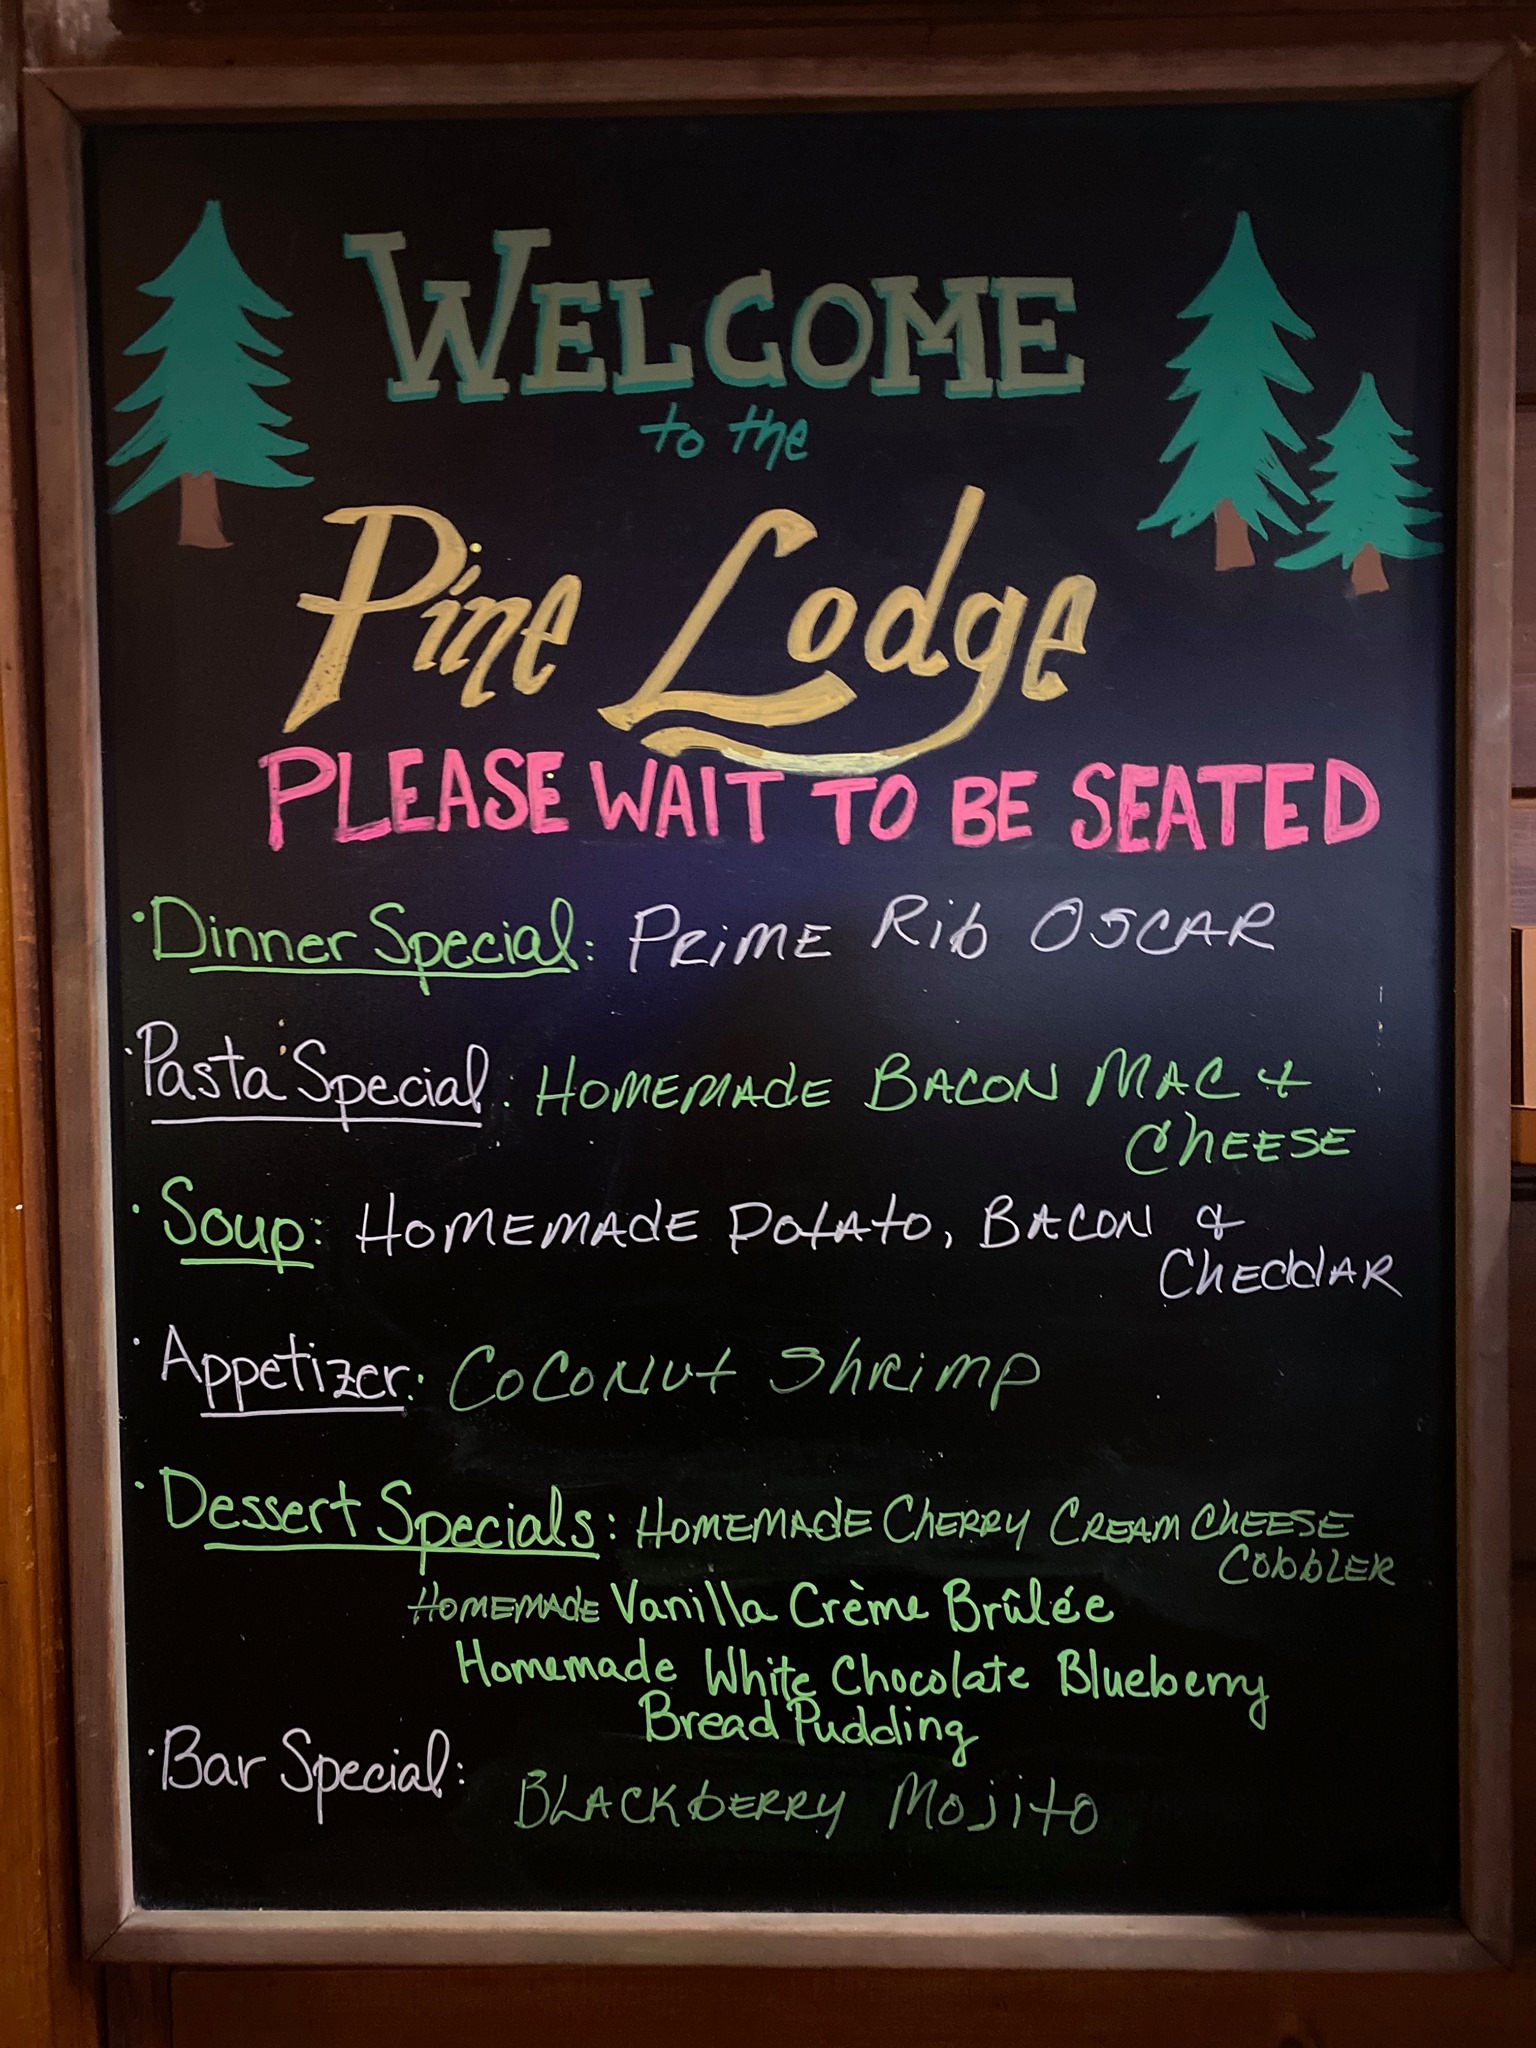 WELCOME
to the
Pine Lodge
PLEASE WAIT TO BE SEATED
·Dinner Special: PRiME Rib OSCAR
·Pasta Special: HOMEMADE BACON MAC &
CHEESE
·Soup: HOMEMADE POtAtO, BACON &
CHEddAR
·Appetizer: COCONUt ShRimp
·Dessert Specials: HOMEMADE CHERRY CREAM CHEESE
CObbLER
HOMEMADE Vanilla Crème Brûlée
Homemade White Chocolate Blueberry
Bread Pudding
·Bar Special:
BLACKbERRY MojitO